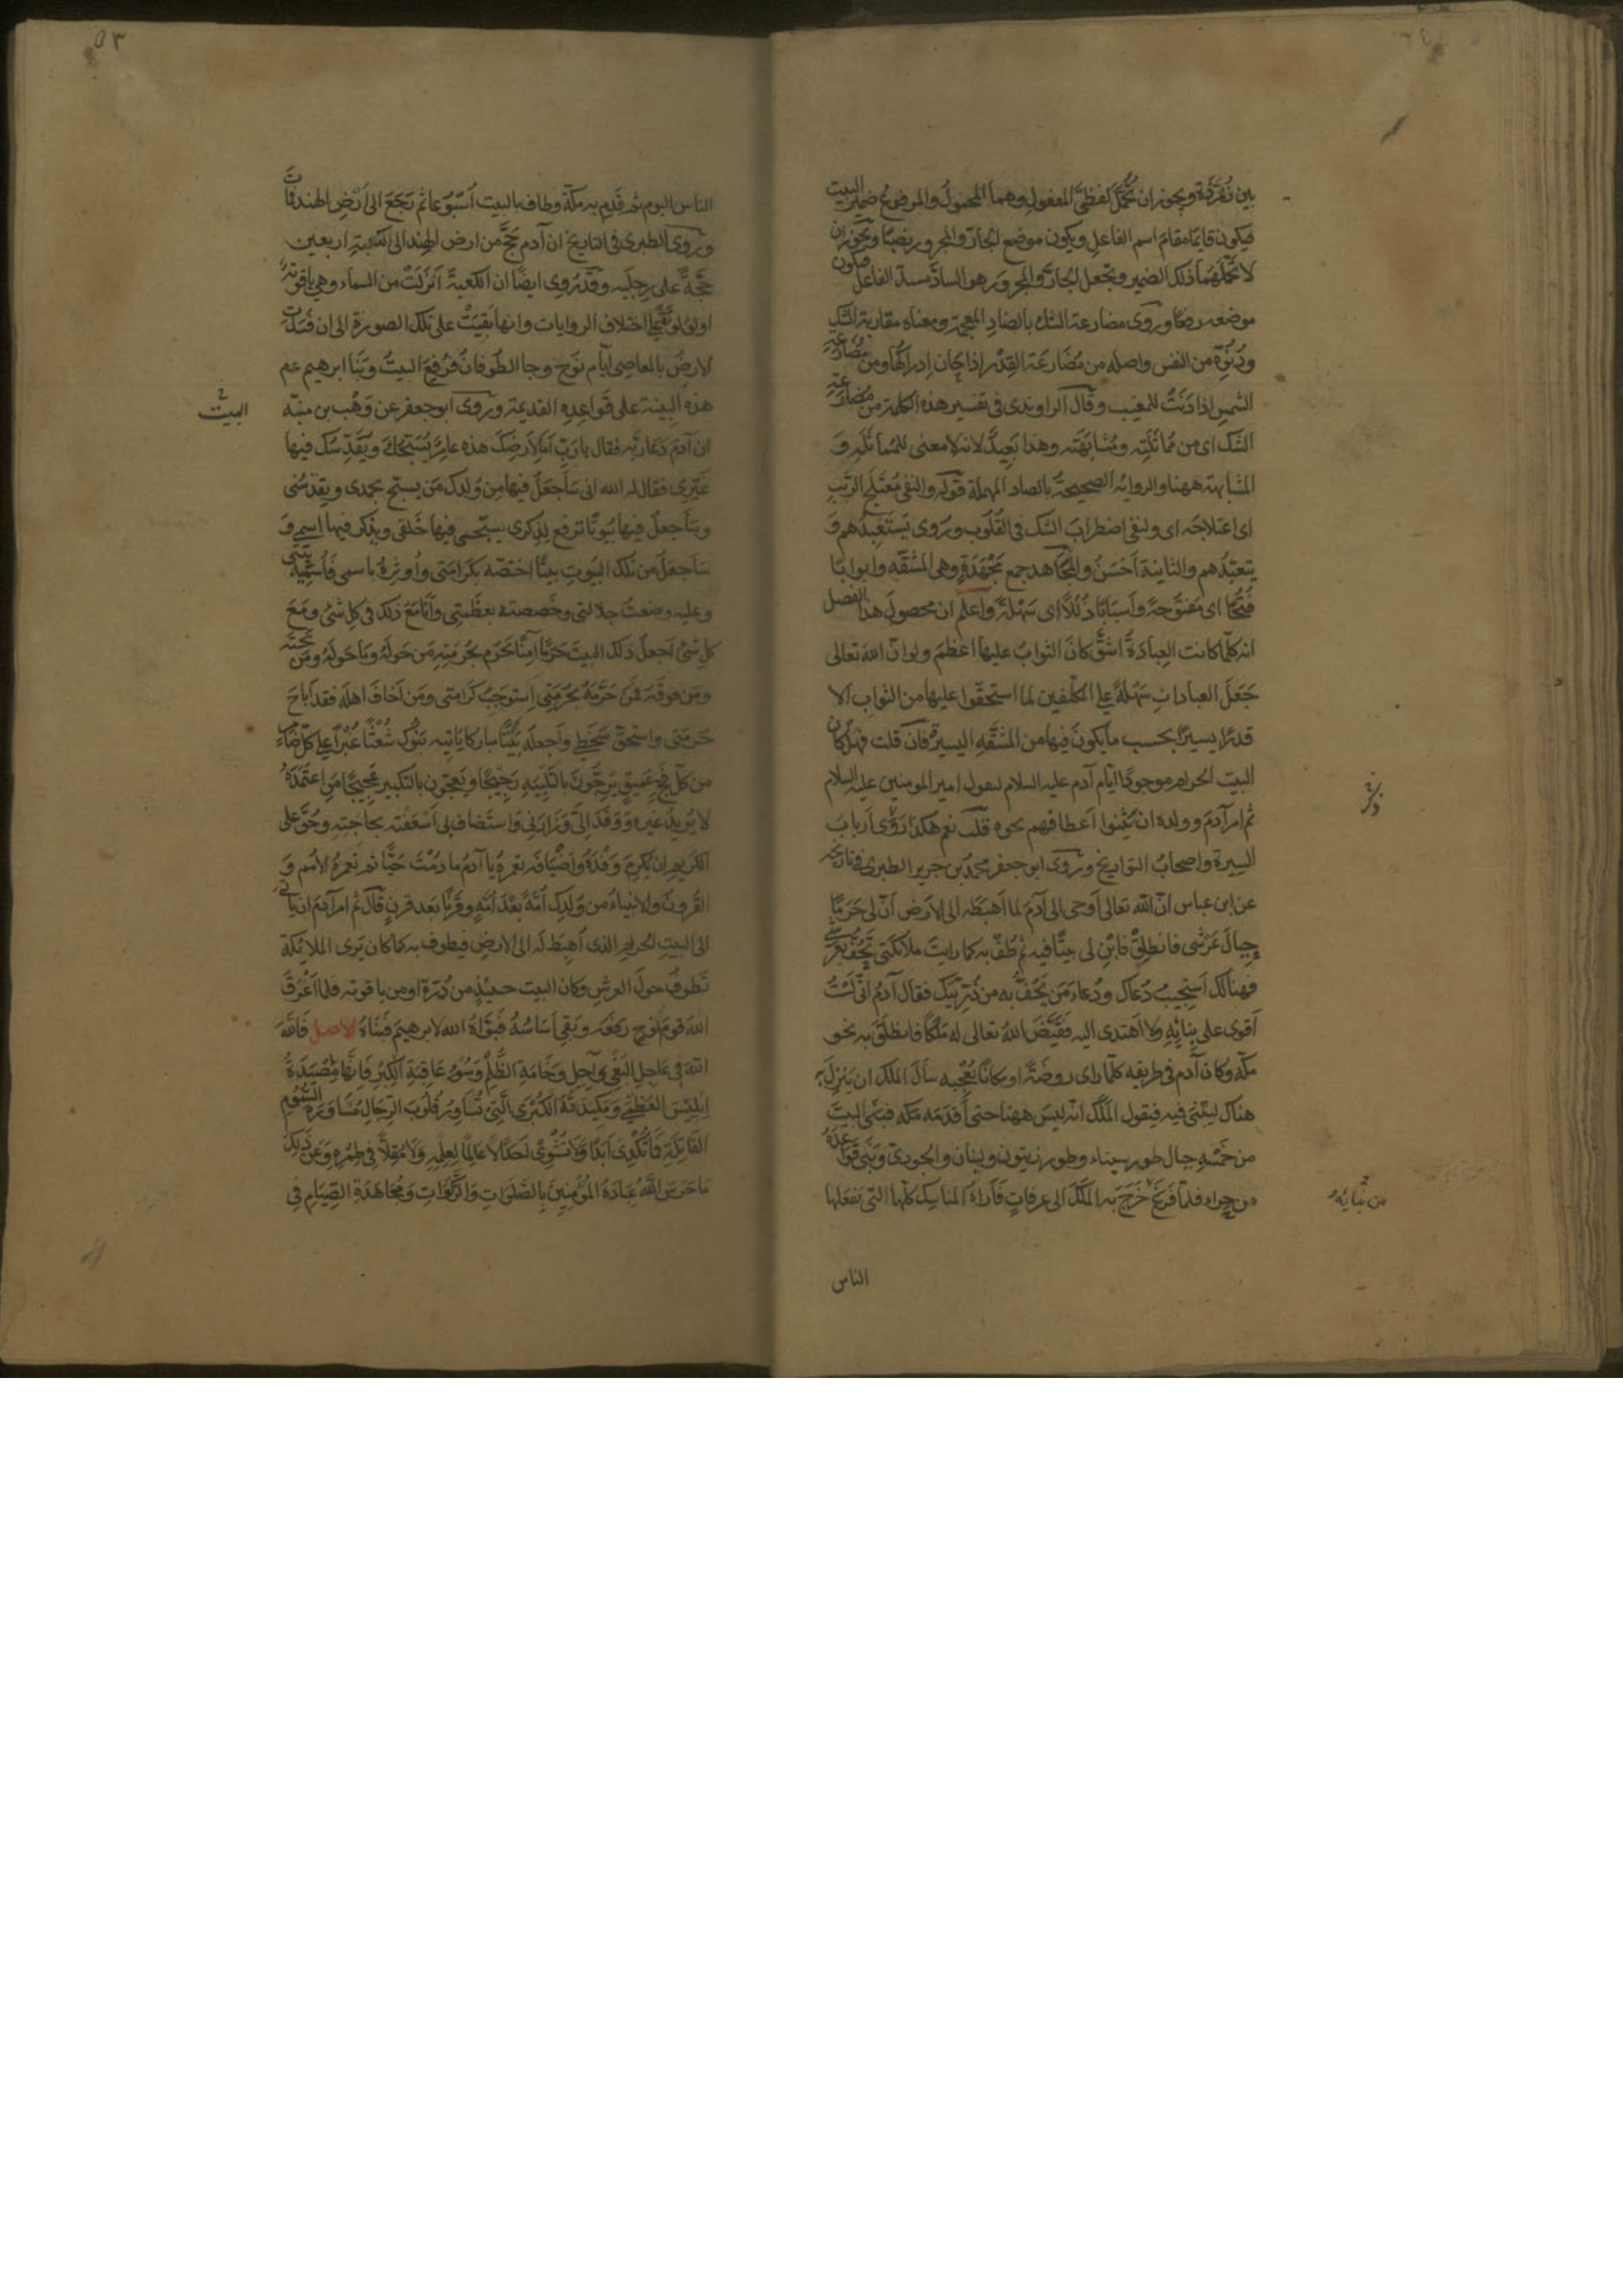 بين زُمُرّدة ويجوز ان تُحمل لفظتى المفعول وهما المحمول والمرفوع ضمير البيت
فيكون قايمًا مقام اسم الفاعل ويكون موضع الجار والمجرور نصبًا ويجوز ان
لا تحملهما ذلك الضمير وتجعل الجار والمجرور هو السادّ مسدّ الفاعل فيكون
موضعه رفعًا وروى مضارعة الشك بالضاد المعجمة ومعناه مقاربة الشك
ودُنُوّه من النفس واصله من مُضارعة القدر اذا حان ادراكها ومن مضارعة
الشمس اذا دَنَتْ للمغيب وقال الراوندى فى تفسير هذه الكلمة من مضارعة
الشك اى من مماثلته ومُشابهته وهذا بعيدٌ لانه لا معنى للمماثلة وَ
المشابهة ههنا والرواية الصحيحة بالصاد المهملة قوله والنفى مُعْتلج الريب
اى اعتلاجَه اى ولنفى اضطراب الشك فى القلوب وروى يَستعبدهم وَ
يتعبّدُهم والثانية اَحْسَنُ والمجاهد جمع مَجْهَدَةٍ وهى المشقّه وابوابًا
فُتُحًا اى مَفتوحةً وأسبابًا ذُلُلًا اى سَهْلةً واعلم ان محصول هذا الفصل
انه كلّما كانت العِبادَةُ اشقَّ كان الثوابُ عليها اعظمَ ولو انّ الله تعالى
جَعَلَ العبادات سَهْلةً على المكلّفين لما استحقّوا عليها من الثواب الا
قدرًا يسيرًا بحسب ما يكون فيها من المشقّه اليسيرة فان قلت فهل كان
البيت الحرام موجودًا ايام آدم عليه السلام ليقول امير المومنين عليه السلام
ثم امر آدم وولده ان يثنوا اعطافهم نحوه قلت نعم هكذا روى ارباب
السيرة واصحاب التواريخ وروى ابو جعفر محمد بن جرير الطبرى فى تاريخه
عن ابن عباس انّ الله تعالى اوحى الى آدم لما اهبطه الى الارض انّ لى حَرَمًا
حِيالَ عَرْشى فانطلِقْ فابْنِ لى بيتًا فيه ثم طُفْ به كما رايتَ ملائكتى تحُفُّ بعرشى
فهنالك استجيبُ دُعاك ودُعاء مَن يَحُفُّ به من ذُرّيّتِك فقال آدم انّى لَسْتُ
أقوى على بِنائِه ولا اهتدى اليه فقيّض الله تعالى له مَلَكًا فانطلق به نحو
مكّه وكان آدم فى طريقه كلّما راى روضةً او مكانًا يُعْجبه سأل الملك ان يَنزل به
هناك ليبنى فيه فيقول الملك انه ليس ههنا حتى أقدمَه مكه فبنى البيت
من خَمْسَةِ جبال طور سيناء وطور زيتون ولبنان والجودىّ وبَنى قواعدَهُ
من حِراء فلمّا فرغ خَرَجَ به الملك الى عرفاتٍ فاراه المناسك كلّها التى يفعلها
الناس
ذكر
من بنائه
٥٣
الناس اليوم ثم قَدِم به مكّة وطاف بالبيت أُسْبوعا ثم رَجَعَ الى ارض الهند فمات
وروى الطبرى فى التاريخ ان آدم حجّ من ارض الهند الى الكعبة اربعين
حجّةً على رِجليه وقد رُوى ايضًا ان الكعبة اُنزلت من السماء وهى ياقوتة
او لؤلؤة على اختلاف الروايات وانها بقيتْ على تلك الصورة الى ان فسدت
الارضُ بالمعاصى ايّام نوح وجا الطوفان فرُفِعَ البيتُ وبَنا ابرهيم عم
هذه البنية على قواعِدِه القديمة وروى ابو جعفر عن وَهْب بن منبّه
ان آدمَ دَعا ربّه فقال يا ربّ اما لارضك هذه عامرٌ يُسبّحُكَ ويُقدّسُك فيها
غَيرى فقال له الله انى سَاَجعلُ فيها من وُلدك مَن يسبّح بحمدى ويقدّسُنى
وسَأجعلُ فيها بيوتًا تُرفع لذِكرى يسبّحنى فيها خَلقى ويذكر فيها اسمى وَ
سَاجعلُ من تلك البيوت بيتًا اختصّه بكرامتى واُوثِرهُ باسمى فاُسَمّيه بيتى
وعليه وضعتُ جلالتى وخصصته بعظمتى وانا مع ذلك فى كل شئ ومَعَ
كلّ شئ اجعل ذلك البيت حَرَمًا آمنًا يَحرُم بحُرمته مَن حَوله وما حَولهُ ومَن تحته
ومَن فوقه فمن حرّمهُ بحُرمتى استوجبَ كرامتى ومَن اخاف اهله فقد اباح
حرمتى واستحقّ سَخَطى واجعله بَيْتًا مباركًا ياتيه بَنُوك شُعْثًا غُبْرًا على كلّ ضامرٍ
من كلّ فجٍّ عميقٍ يرجّون بالتلبية رَجيجًا ويَعجّون بالتكبير عَجيجًا مَن اعتمدَهُ
لا يُريدُ غيره ووَفَدَ الىّ وزارنى واستضاف بى اَسْعَفْته بحاجته وحُقّ على
الكريم ان يُكرِمَ وَفْدَهُ واَضْيافَه يعمرهُ يا آدمُ ما دُمْتَ حيًّا ثم تعمرهُ الاُمَم وَ
القُرونُ والانبياءُ من وُلدك اُمّةً بَعْدَ اُمّةٍ وقَرْنًا بعد قرنٍ قال ثم امر آدم ان ياتى
الى البيت الحرام الذى اُهبِط له الى الارض فيطوف به كما كان يَرى الملائكة
تطوفُ حولَ العرش وكان البيت حينئذٍ من دُرّة او من ياقوته فلما اَغرَقَ
اللهُ قومَ نوحٍ رَفَعَه وبَقِىَ اَسَاسُهُ فبوّاهُ الله لابرهيم فبَناهُ الاصل فَاللهَ
اللهَ فى عَاجِلِ البَغْىِ وآجِلِ وَخَامَةِ الظُّلْمِ وَسُوءِ عَاقِبَةِ الكِبْرِ فَإنَّهَا مَصْيَدَةُ
اِبْلِيسَ العُظْمَى وَمَكِيدَتُهُ الكُبْرَى الَّتِى تُسَاوِرُ قُلُوبَ الرِّجَالِ مُسَاوَرَةَ السُّمُومِ
القَاتِلَةِ فَمَا تُكْدِى اَبَدًا وَلَا تُشْوِى اَحَدًا لَا عَالِمًا لِعِلْمِهِ وَلَا مُقِلًّا فِى طِمْرِهِ وَعَنْ ذَلِكَ
مَا حَرَسَ اللهُ عِبَادَهُ المُؤمِنِينَ بِالصَّلَوَاتِ وَالزَّكَوَاتِ وَمُجَاهَدَةِ الصِّيَامِ فِى
البيت